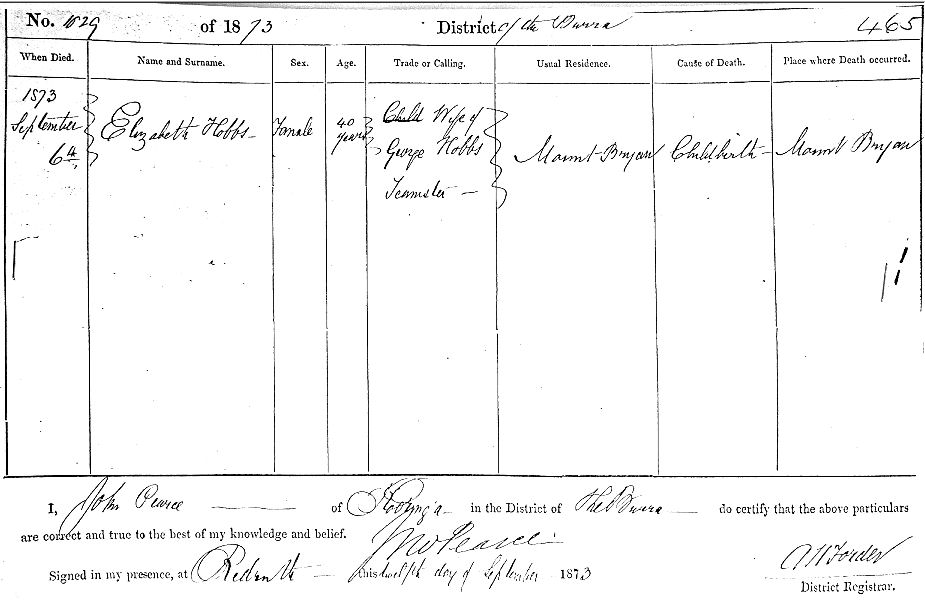 No. 1029 of 1873 District of the Burra 465
When Died. Name and Surname. Sex. Age. Trade or Calling. Usual Residence. Cause of Death. Place where Death occurred.
1873
September
6th
Elizabeth Hobbs
Female
40
years
Child Wife of
George Hobbs
Teamster
Mount Bryan
Childbirth
Mount Bryan
I, John Pearce of Kooringa in the District of The Burra do certify that the above particulars
are correct and true to the best of my knowledge and belief.
Jno Pearce
Signed in my presence, at Redruth this twelfth day of September 1873
Forder
District Registrar.